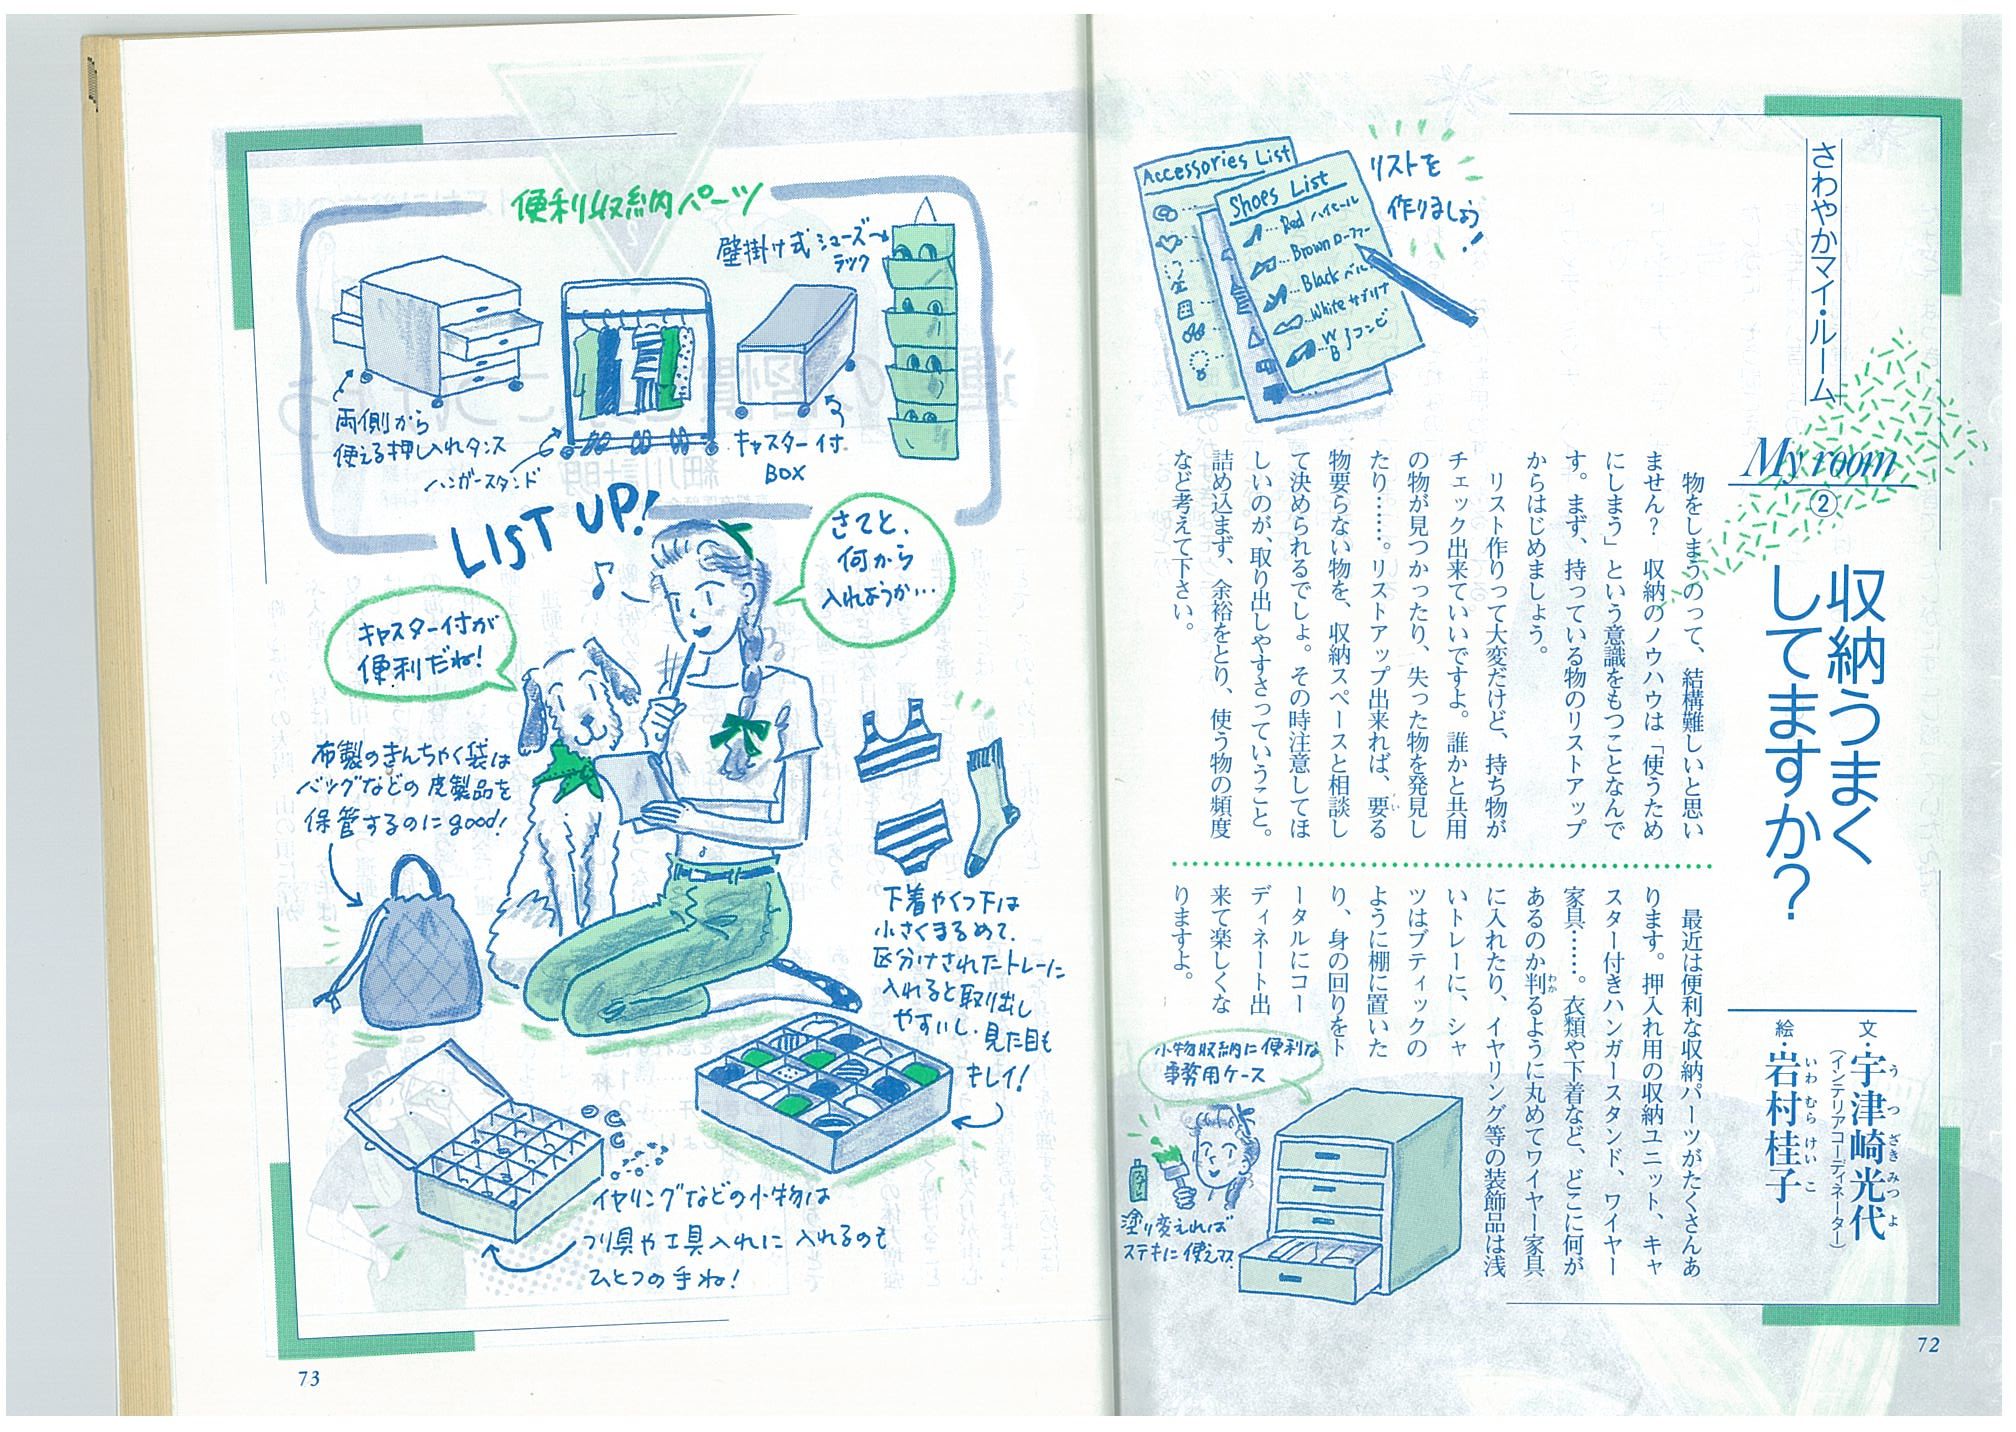 さわやかマイ・ルーム
My room
②
収納うまく
してますか?
文・宇津崎光代
うつざきみつよ
(インテリアコーディネーター)
絵・岩村桂子
いわむらけいこ
Accessories List
Shoes List
Red ハイヒール
Brown ローファー
Black ベルト
White サブリナ
W B コンビ
リストを
作りましょう!
物をしまうのって、結構難しいと思い
ません? 収納のノウハウは「使うため
にしまう」という意識をもつことなんで
す。まず、持っている物のリストアップ
からはじめましょう。
リスト作りって大変だけど、持ち物が
チェック出来ていいですよ。誰かと共用
の物が見つかったり、失った物を発見し
たり……。リストアップ出来れば、要る
い
物要らない物を、収納スペースと相談し
て決められるでしょ。その時注意してほ
しいのが、取り出しやすさっていうこと。
詰め込まず、余裕をとり、使う物の頻度
など考えて下さい。
最近は便利な収納パーツがたくさんあ
ります。押入れ用の収納ユニット、キャ
スター付きハンガースタンド、ワイヤー
家具……。衣類や下着など、どこに何が
あるのか判るように丸めてワイヤー家具
わか
に入れたり、イヤリング等の装飾品は浅
いトレーに、シャ
ツはブティックの
ように棚に置いた
り、身の回りをト
ータルにコー
ディネート出
来て楽しくな
りますよ。
小物収納に便利な
事務用ケース
塗り変えれば
ステキに使えマス
72
便利収納パーツ
両側から
使える押し入れタンス
ハンガースタンド
キャスター付
BOX
壁掛け式シューズ
ラック
LIST UP!
さてと、
何から
入れようか…
キャスター付が
便利だね!
布製のきんちゃく袋は
バッグなどの皮製品を
保管するのにgood!
下着やくつ下は
小さくまるめて、
区分けされたトレーに
入れると取り出し
やすいし、見た目も
キレイ!
イヤリングなどの小物は
つり具や工具入れに入れるのも
ひとつの手ね!
73